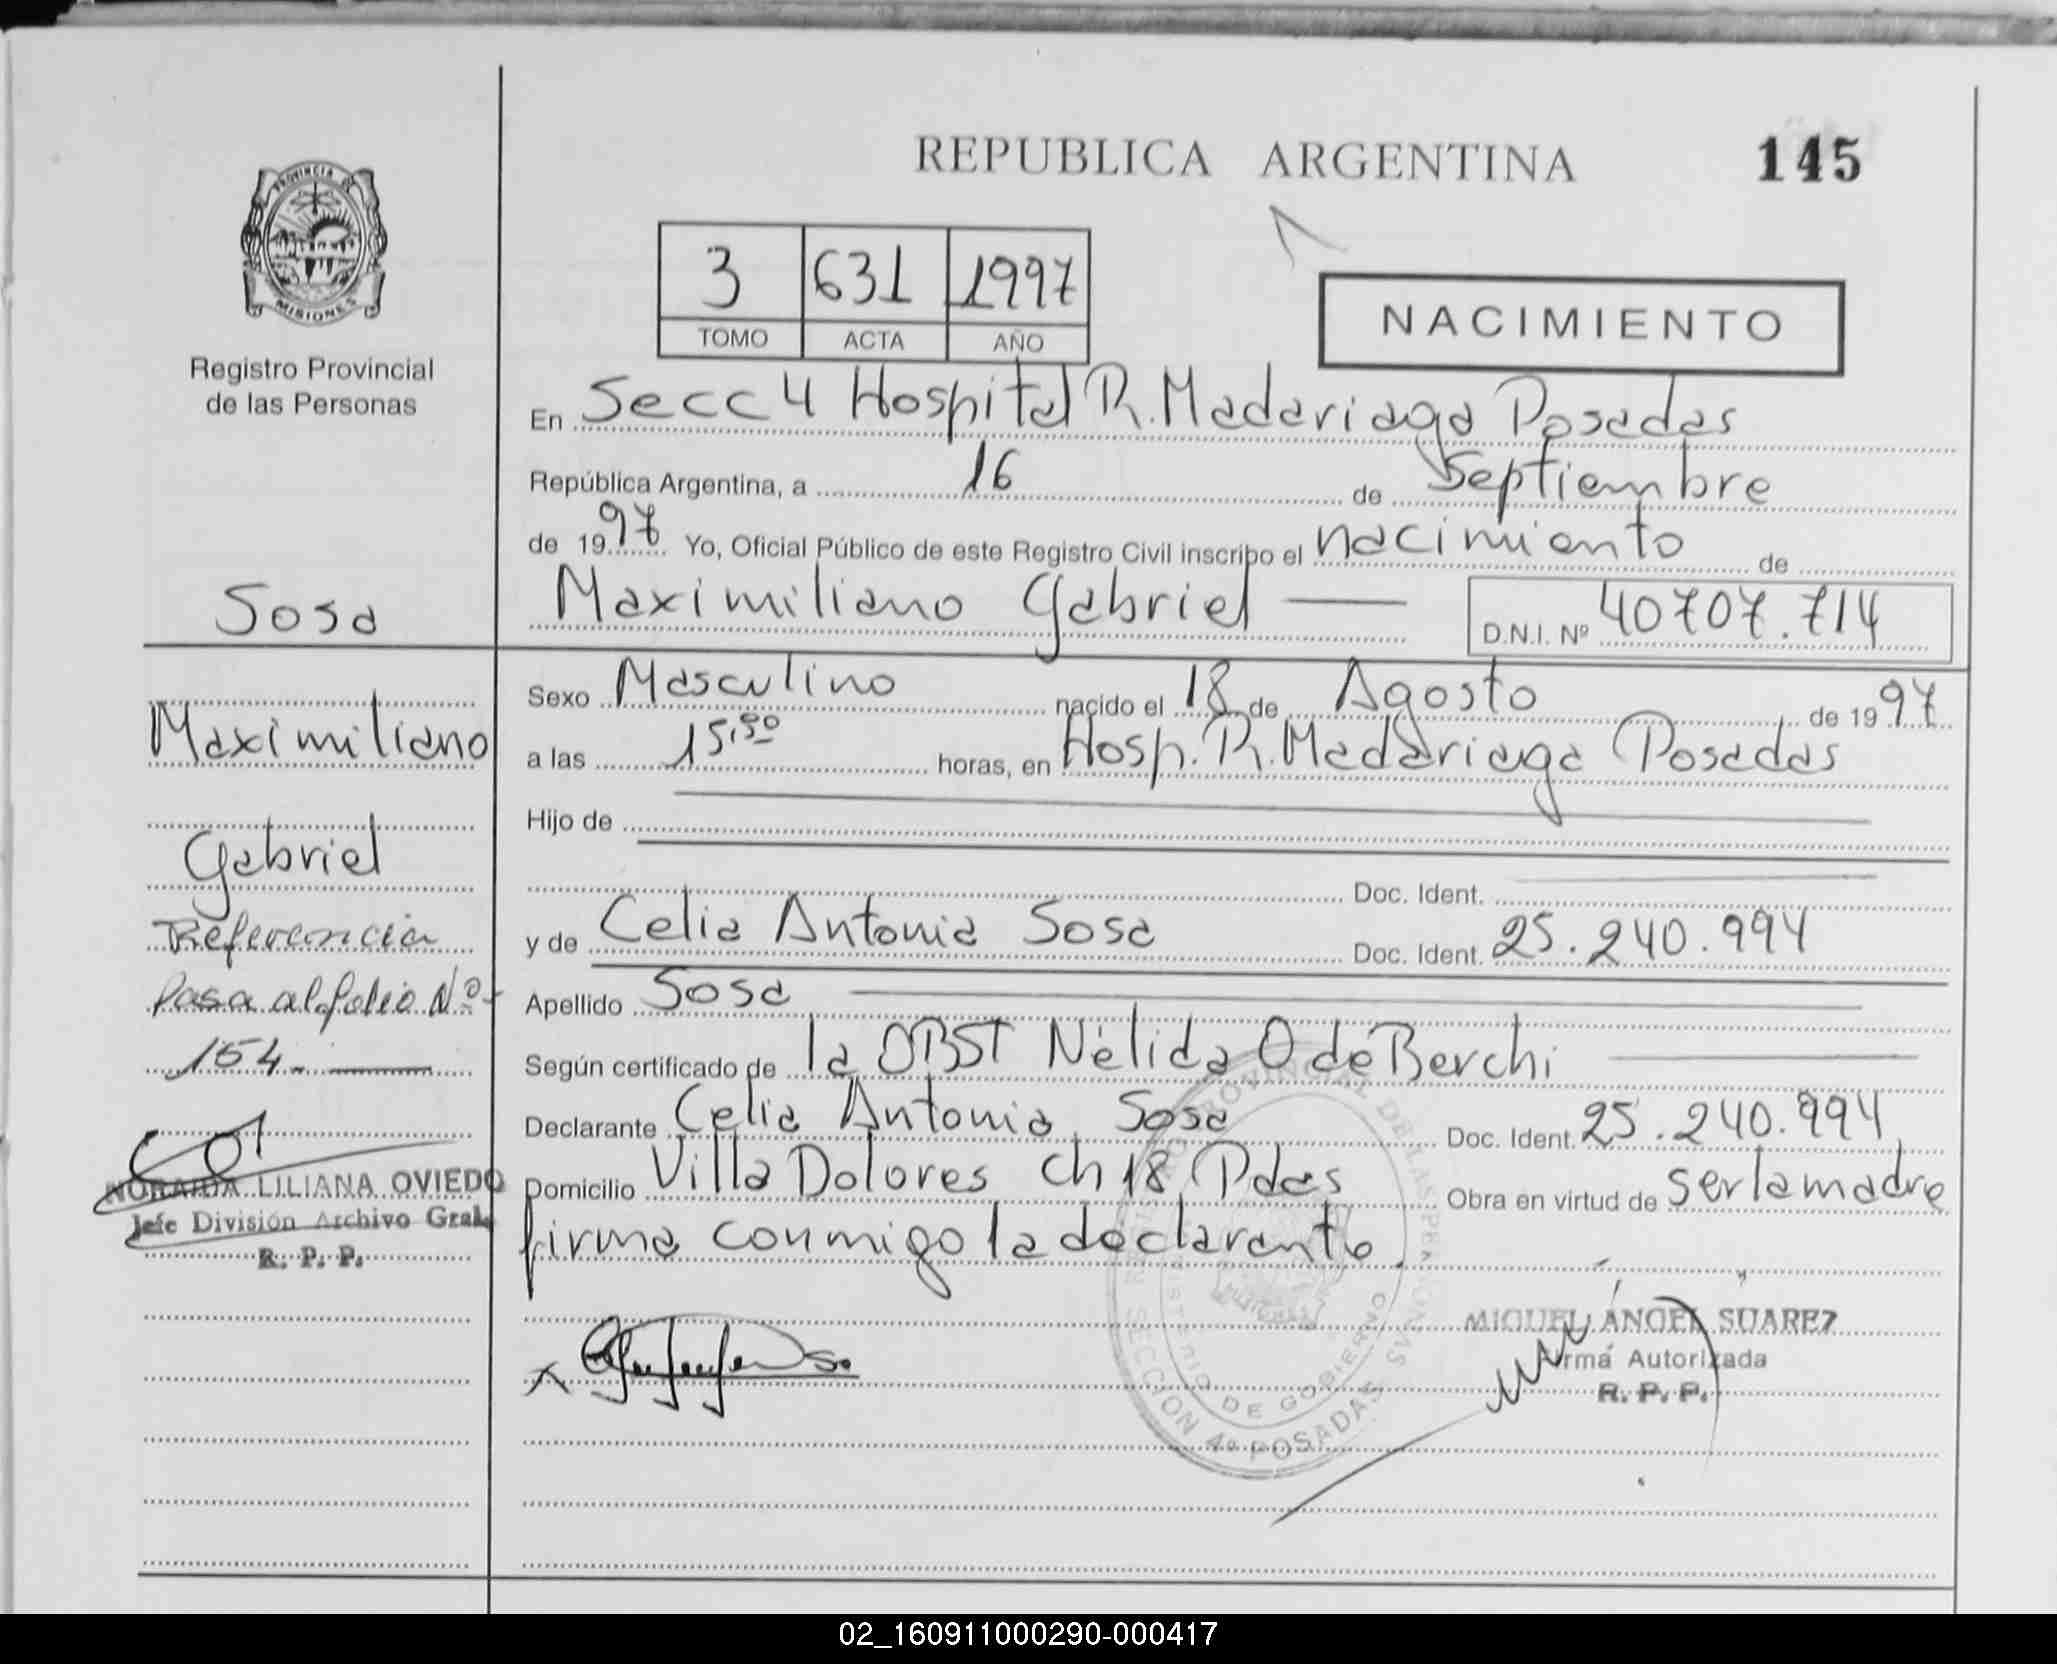 REPUBLICA ARGENTINA
145
PROVINCIA DE
MISIONES
Registro Provincial
de las Personas
3 631 1997
TOMO ACTA AÑO
NACIMIENTO
En Secc 4 Hospital R. Madariaga Posadas
República Argentina, a 16 de Septiembre
de 1997 Yo, Oficial Público de este Registro Civil inscribo el nacimiento de
Maximiliano Gabriel
D.N.I. Nº 40707.714
Sexo Masculino nacido el 18 de Agosto de 1997
a las 15,50 horas, en Hosp. R. Madariaga Posadas
Hijo de
Doc. Ident.
y de Celia Antonia Sosa Doc. Ident. 25.240.994
Apellido Sosa
Según certificado de la OBST Nélida O de Berchi
Declarante Celia Antonia Sosa Doc. Ident. 25.240.994
Domicilio Villa Dolores Ch 18 Pdas Obra en virtud de ser la madre
firma conmigo la declarante
Sosa
Maximiliano
Gabriel
Referencia
Pasa al folio Nº
154.
NORAIDA LILIANA OVIEDO
Jefe División Archivo Gral.
R. P. P.
REGISTRO PROVINCIAL DE LAS PERSONAS
MINISTERIO DE GOBIERNO
MISIONES
SECCION 4º POSADAS
MIGUEL ÁNGEL SUAREZ
Firma Autorizada
R. P. P.
02_160911000290-000417